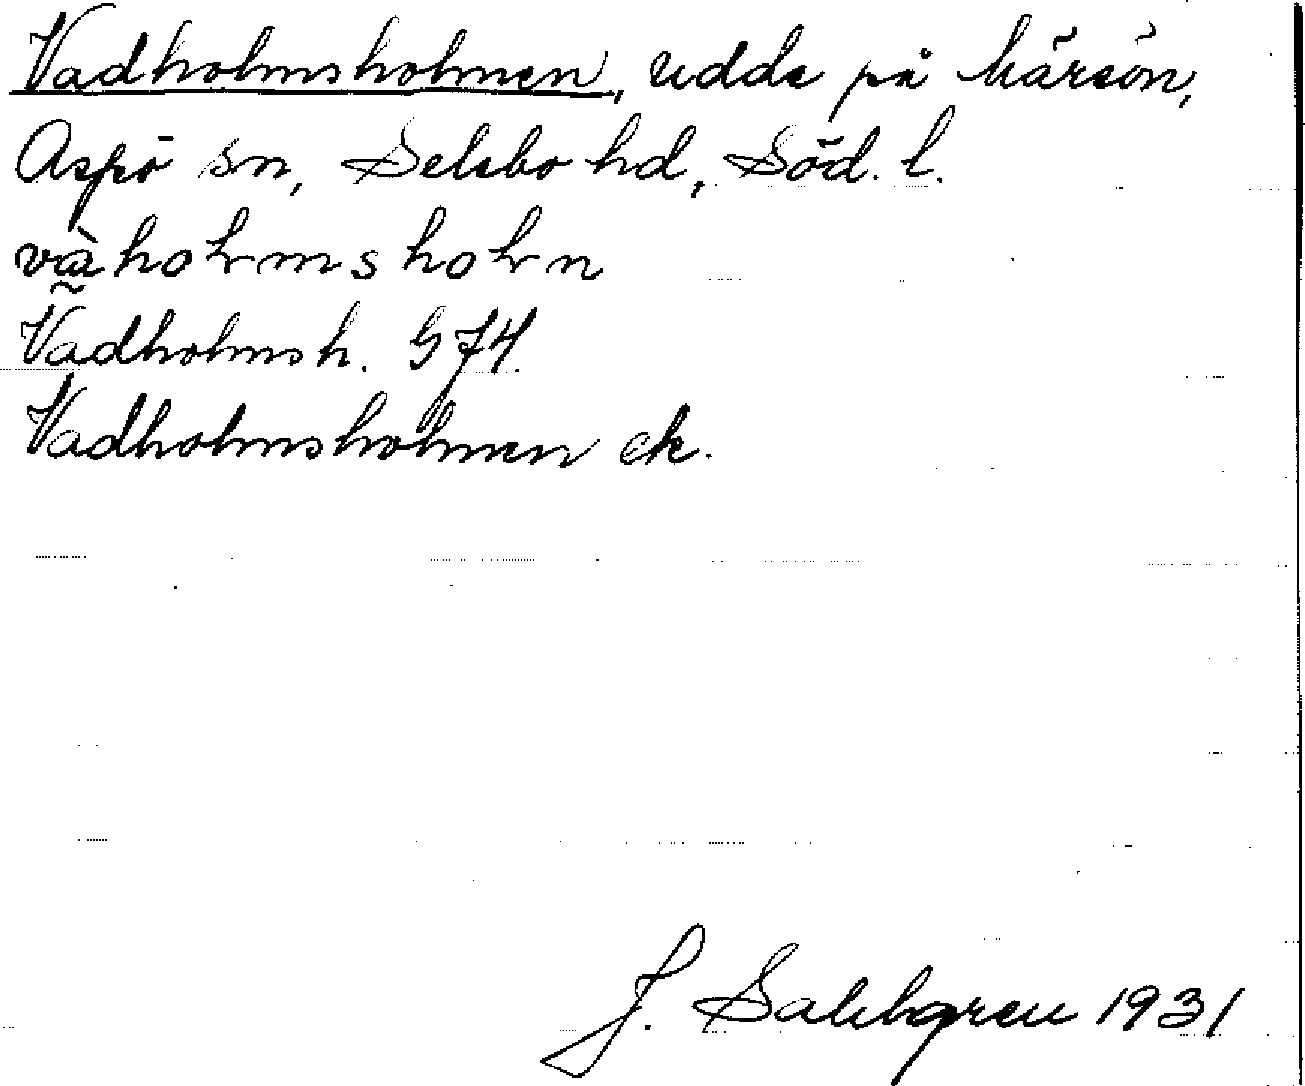 Vadholmsholmen, udde på Märsön,
Aspö sn, Selebo hd, Söd. l.
vàholmsholn
Vadholmsh. G 74.
Vadholmsholmen ek.
J. Sahlgren 1931